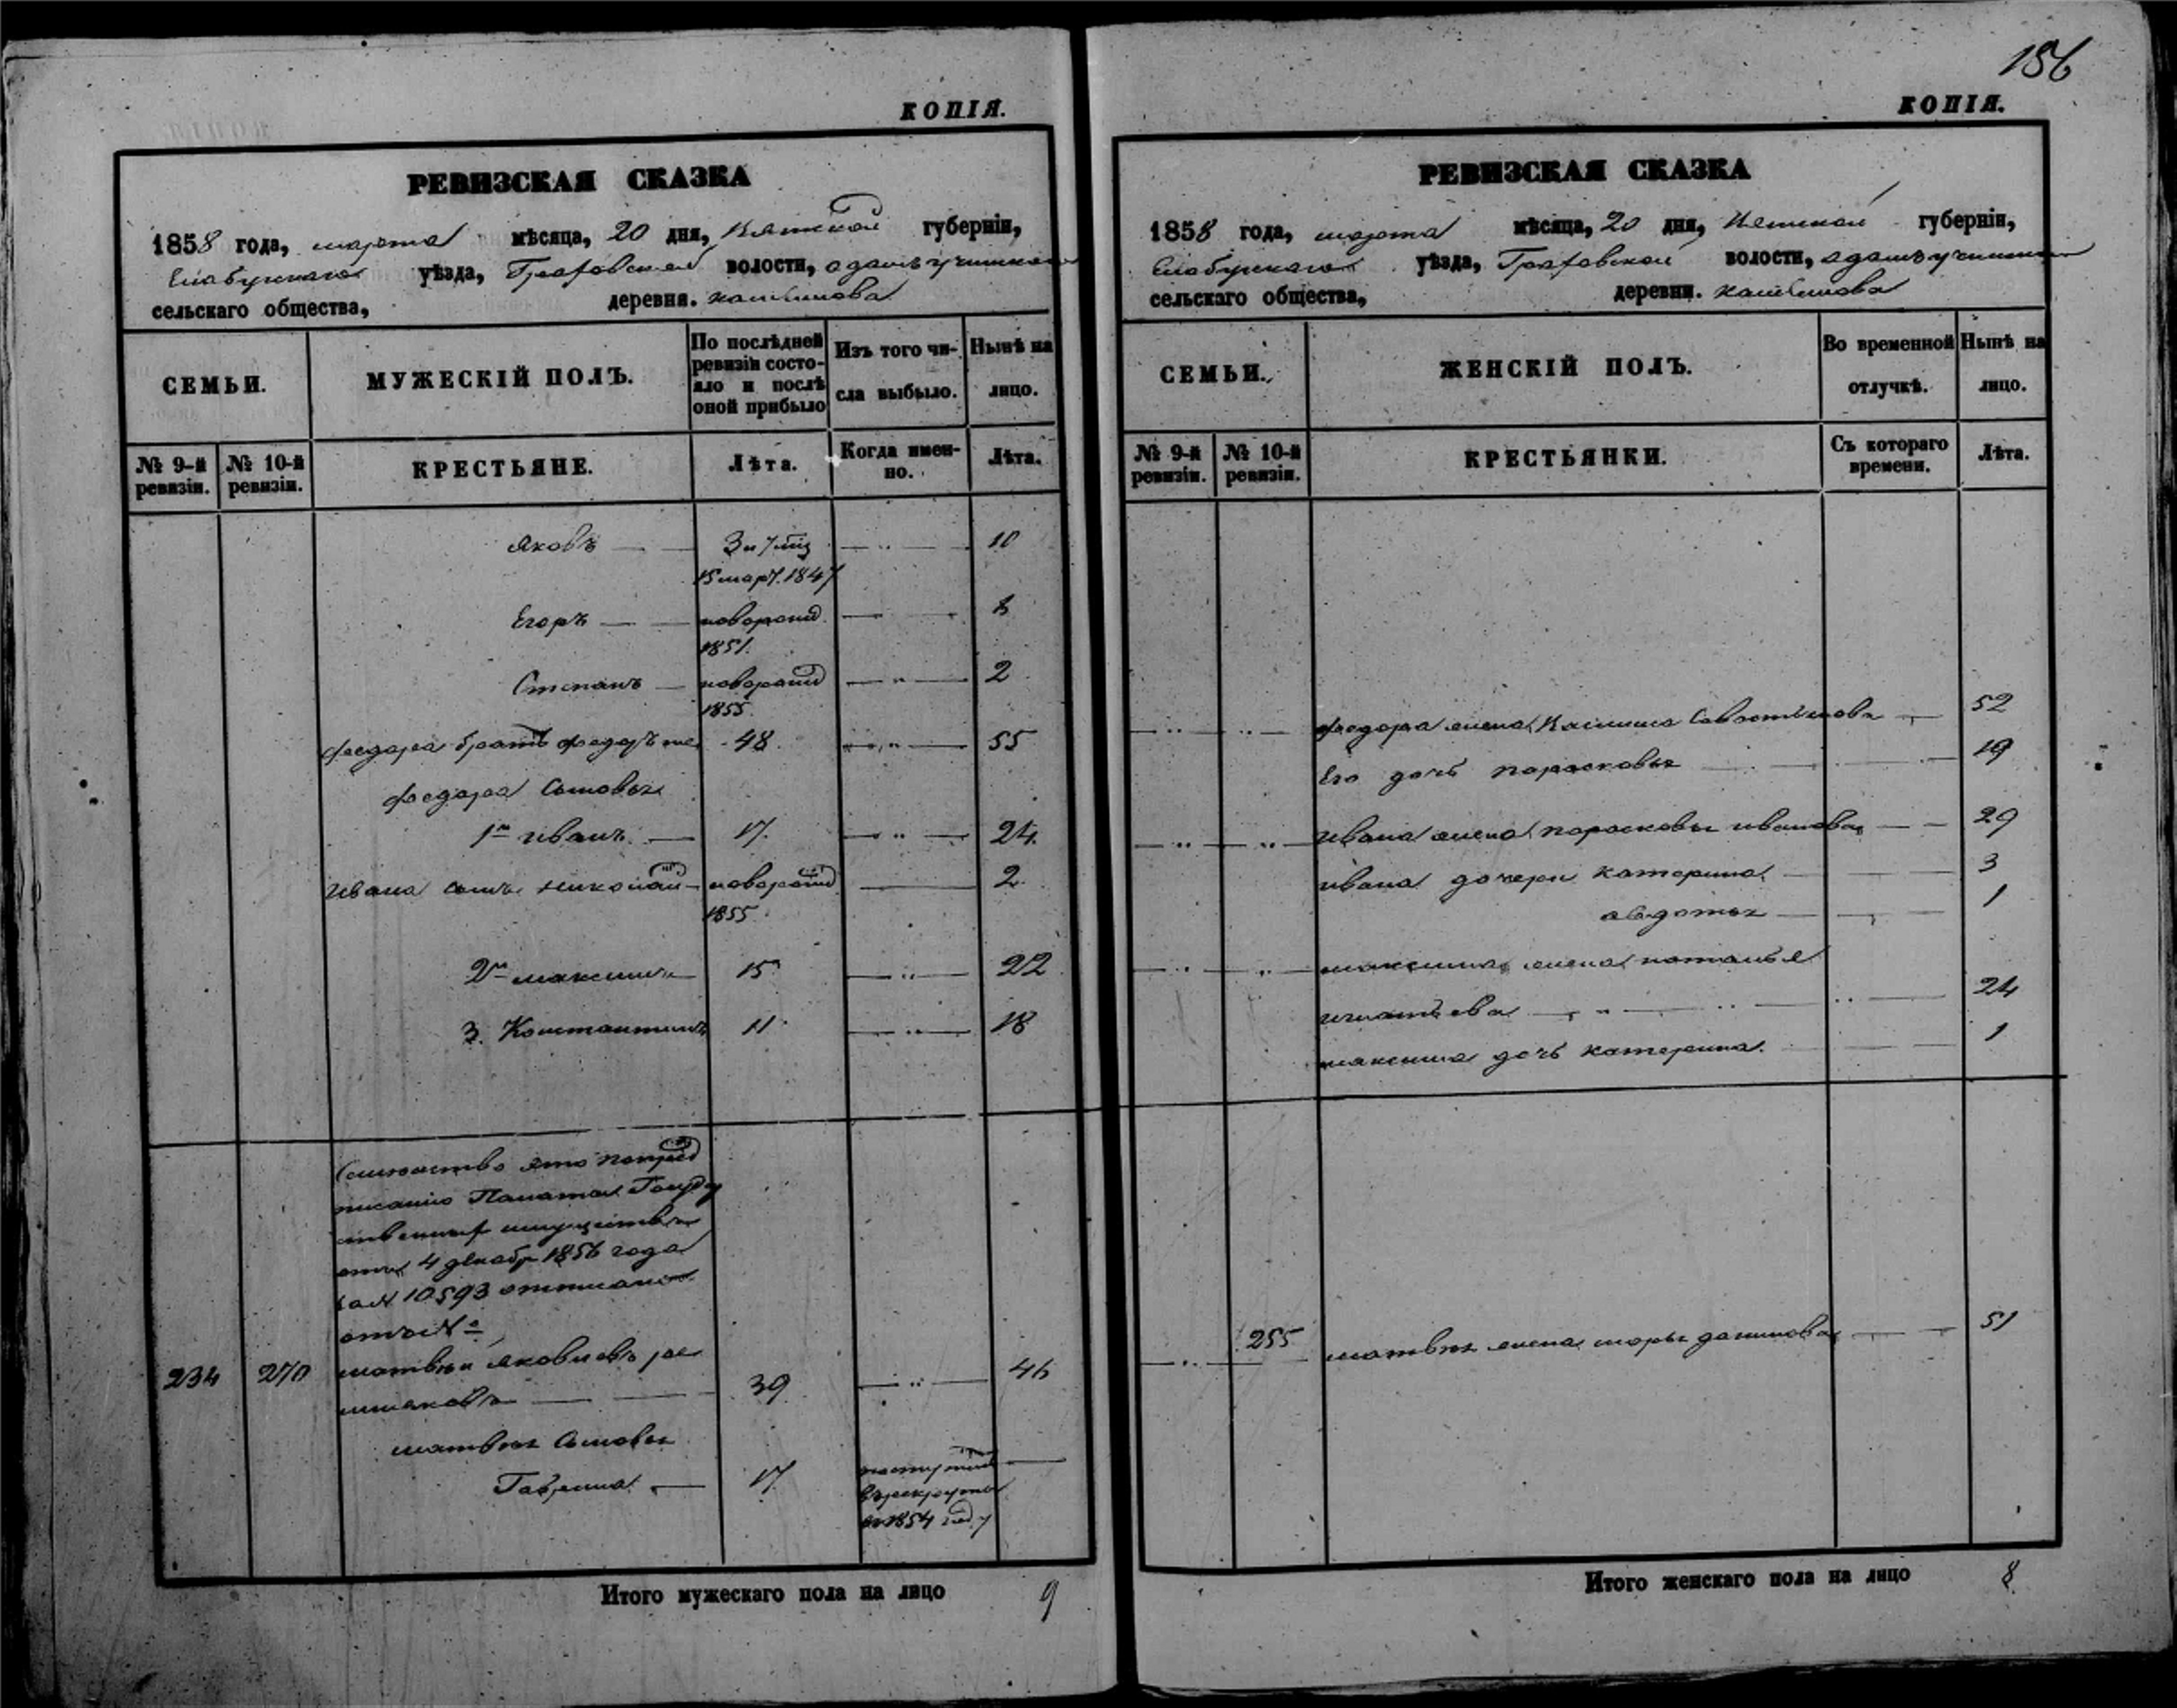 КОПІЯ.
РЕВИЗСКАЯ СКАЗКА
1858 года, марта мѣсяца, 20 дня, Вятской губерніи,
Елабужскаго уѣзда, Граховской волости,
сельскаго общества, деревня.
СЕМЬИ.
МУЖЕСКІЙ ПОЛЪ.
По послѣдней ревизіи состо-
яло и послѣ
оной прибыло
Изъ того чи-
сла выбыло.
Нынѣ на
лицо.
№ 9-й ревизіи.
№ 10-й ревизіи.
КРЕСТЬЯНЕ.
Лѣта.
Когда имен-
но.
Лѣта.
Яковъ 3 и 7 10
15 март. 1847
Егоръ 8
1851.
Степанъ 2
1855.
Федора братъ Федоръ же 48. 55
Федора Сыновья
1й Иванъ 17. 24.
Ивана сынъ Николай 2.
1855.
2й Максимъ 15 22
3. Константинъ 11 18
Семейство это по пред
писанію Палаты Государ
ственныхъ имуществъ
отъ 4 декабр 1856 года
за № 10593
234 270 Матвѣй Яковлевъ
39 46
Матвѣя Сыновья
Гаврила 17.
поступилъ
въ рекруты
въ 1854 году
Итого мужескаго пола на лицо 9
186
КОПІЯ.
РЕВИЗСКАЯ СКАЗКА
1858 года, марта мѣсяца, 20 дня, Вятской губерніи,
Елабужскаго уѣзда, Граховской волости,
сельскаго общества, деревни.
СЕМЬИ.
ЖЕНСКІЙ ПОЛЪ.
Во временной
отлучкѣ.
Нынѣ на
лицо.
№ 9-й ревизіи.
№ 10-й ревизіи.
КРЕСТЬЯНКИ.
Съ котораго
времени.
Лѣта.
Федора жена 52
Его дочь Парасковья 19
Ивана жена Парасковья Иванова 29
Ивана дочери Катерина 3
Авдотья 1
Максима жена Наталья
Игнатьева 24
Максима дочь Катерина. 1
255 Матвѣя жена Марья Данилова 51
Итого женскаго пола на лицо 8.